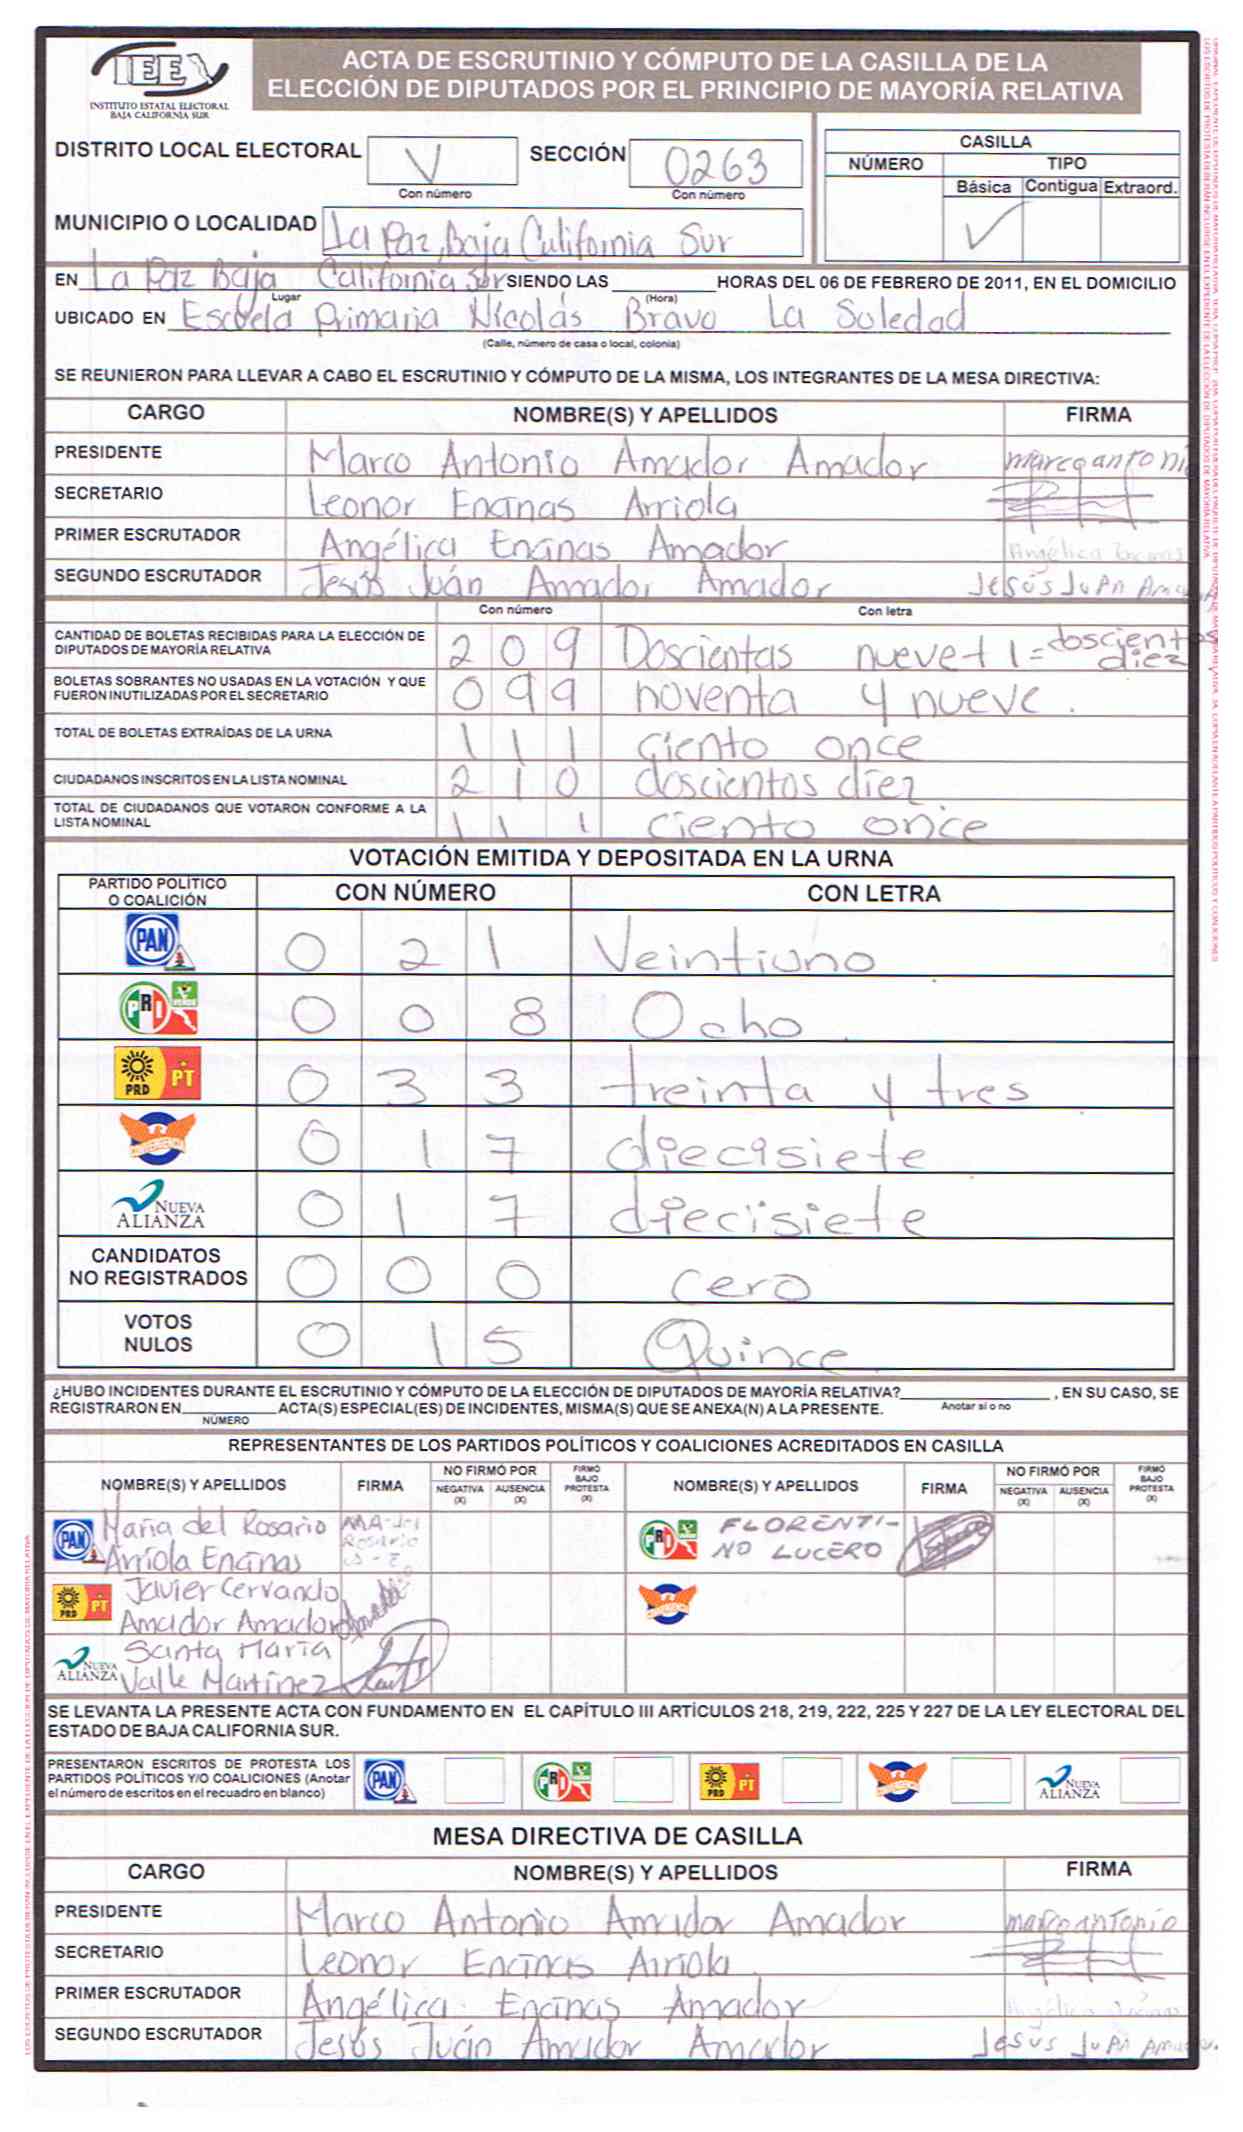 IEE
INSTITUTO ESTATAL ELECTORAL
BAJA CALIFORNIA SUR
ACTA DE ESCRUTINIO Y CÓMPUTO DE LA CASILLA DE LA
ELECCIÓN DE DIPUTADOS POR EL PRINCIPIO DE MAYORÍA RELATIVA
DISTRITO LOCAL ELECTORAL V SECCIÓN 0263
Con número Con número
CASILLA
NÚMERO TIPO
Básica Contigua Extraord.
✓
MUNICIPIO O LOCALIDAD La Paz, Baja California Sur
EN La Paz Baja California Sur SIENDO LAS HORAS DEL 06 DE FEBRERO DE 2011, EN EL DOMICILIO
Lugar (Hora)
UBICADO EN Escuela Primaria Nicolás Bravo La Soledad
(Calle, número de casa o local, colonia)
SE REUNIERON PARA LLEVAR A CABO EL ESCRUTINIO Y CÓMPUTO DE LA MISMA, LOS INTEGRANTES DE LA MESA DIRECTIVA:
CARGO NOMBRE(S) Y APELLIDOS FIRMA
PRESIDENTE Marco Antonio Amador Amador marco antonio
SECRETARIO Leonor Encinas Arriola
PRIMER ESCRUTADOR Angélica Encinas Amador Angélica
SEGUNDO ESCRUTADOR Jesús Juán Amador Amador Jesús Juan
Con número Con letra
CANTIDAD DE BOLETAS RECIBIDAS PARA LA ELECCIÓN DE
DIPUTADOS DE MAYORÍA RELATIVA 2 0 9 Doscientas nueve + 1 = doscientos diez
BOLETAS SOBRANTES NO USADAS EN LA VOTACIÓN Y QUE
FUERON INUTILIZADAS POR EL SECRETARIO 0 9 9 noventa y nueve.
TOTAL DE BOLETAS EXTRAÍDAS DE LA URNA 1 1 1 ciento once
CIUDADANOS INSCRITOS EN LA LISTA NOMINAL 2 1 0 doscientos diez
TOTAL DE CIUDADANOS QUE VOTARON CONFORME A LA
LISTA NOMINAL 1 1 1 ciento once
VOTACIÓN EMITIDA Y DEPOSITADA EN LA URNA
PARTIDO POLÍTICO
O COALICIÓN CON NÚMERO CON LETRA
PAN 0 2 1 Veintiuno
PRI VERDE 0 0 8 Ocho
PRD PT 0 3 3 treinta y tres
CONVERGENCIA 0 1 7 diecisiete
NUEVA ALIANZA 0 1 7 diecisiete
CANDIDATOS
NO REGISTRADOS 0 0 0 cero
VOTOS
NULOS 0 1 5 Quince
¿HUBO INCIDENTES DURANTE EL ESCRUTINIO Y CÓMPUTO DE LA ELECCIÓN DE DIPUTADOS DE MAYORÍA RELATIVA? , EN SU CASO, SE
REGISTRARON EN ACTA(S) ESPECIAL(ES) DE INCIDENTES, MISMA(S) QUE SE ANEXA(N) A LA PRESENTE. Anotar sí o no
NÚMERO
REPRESENTANTES DE LOS PARTIDOS POLÍTICOS Y COALICIONES ACREDITADOS EN CASILLA
NOMBRE(S) Y APELLIDOS FIRMA NO FIRMÓ POR NEGATIVA (X) AUSENCIA (X) FIRMÓ BAJO PROTESTA (X) NOMBRE(S) Y APELLIDOS FIRMA NO FIRMÓ POR NEGATIVA (X) AUSENCIA (X) FIRMÓ BAJO PROTESTA (X)
PAN María del Rosario Rosario PRI VERDE FLORENTI-
Arriola Encinas NO LUCERO
PRD PT Javier Cervando CONVERGENCIA
Amador Amador
NUEVA ALIANZA Santa María
Valle Martínez
SE LEVANTA LA PRESENTE ACTA CON FUNDAMENTO EN EL CAPÍTULO III ARTÍCULOS 218, 219, 222, 225 Y 227 DE LA LEY ELECTORAL DEL
ESTADO DE BAJA CALIFORNIA SUR.
PRESENTARON ESCRITOS DE PROTESTA LOS
PARTIDOS POLÍTICOS Y/O COALICIONES (Anotar
el número de escritos en el recuadro en blanco)
PAN PRI VERDE PRD PT CONVERGENCIA NUEVA ALIANZA
MESA DIRECTIVA DE CASILLA
CARGO NOMBRE(S) Y APELLIDOS FIRMA
PRESIDENTE Marco Antonio Amador Amador marco antonio
SECRETARIO Leonor Encinas Arriola
PRIMER ESCRUTADOR Angélica Encinas Amador Angélica
SEGUNDO ESCRUTADOR Jesús Juán Amador Amador Jesús Juan